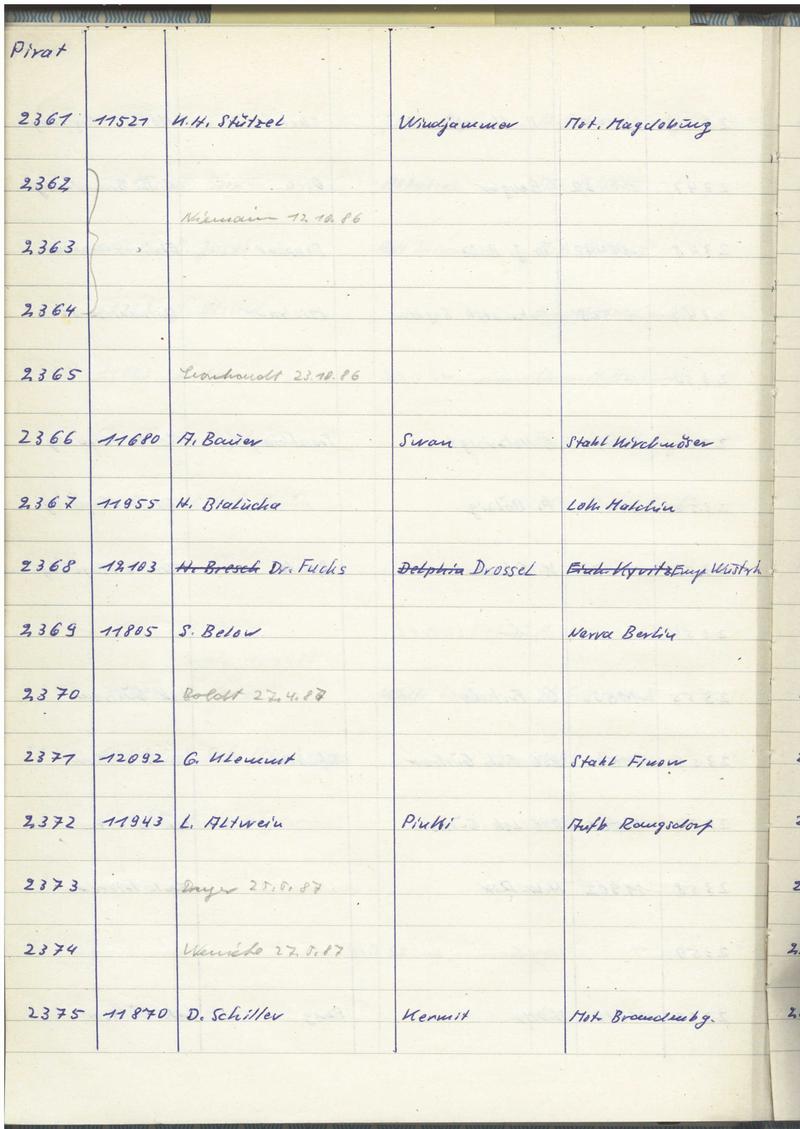 Pirat
2361 11521 H.H. Stützel Windjammer Mot. Magdeburg
2362
Niemann 12.10.86
2363
2364
2365 Leonhardt 23.10.86
2366 11680 A. Bauer Swan Stahl Kirchmöser
2367 11955 H. Bialucha Lok Malchin
2368 12103 H. Bresch Dr. Fuchs Delphin Drossel Einh. Kyritz Emp. Wustrh
2369 11805 S. Below Narva Berlin
2370 Boldt 27.4.87
2371 12092 G. Klemmt Stahl Finow
2372 11943 L. Altwein Pinki Aufb Rangsdorf
2373 25.5.87
2374 27.5.87
2375 11870 D. Schiller Kermit Mot. Brandenbg.